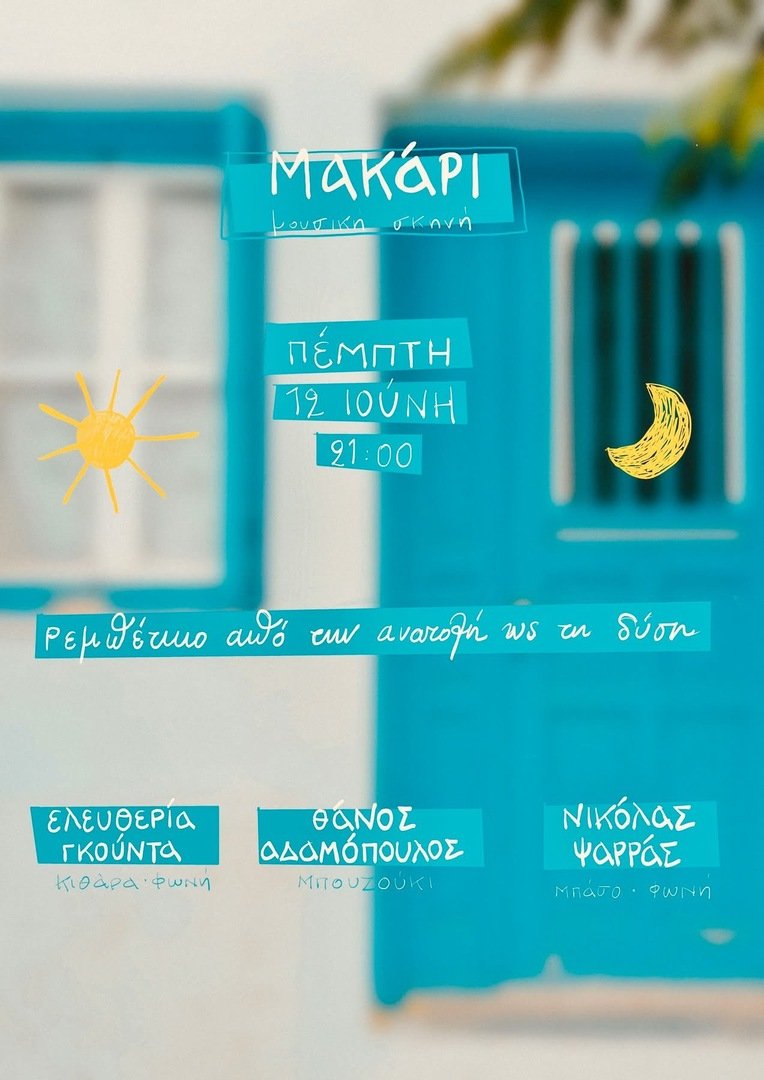 Μακάρι
μουσικη σκηνή
ΠΕΜΠΤΗ
12 ΙΟΎΝΗ
21:00
Ρεμπέτικο από την ανατολή ως τη δύση
ελευθερία
γκούντα
κιθάρα · φωνή
θάνος
αδαμόπουλος
μπουζούκι
νικόλας
ψαρράς
μπάσο · φωνή